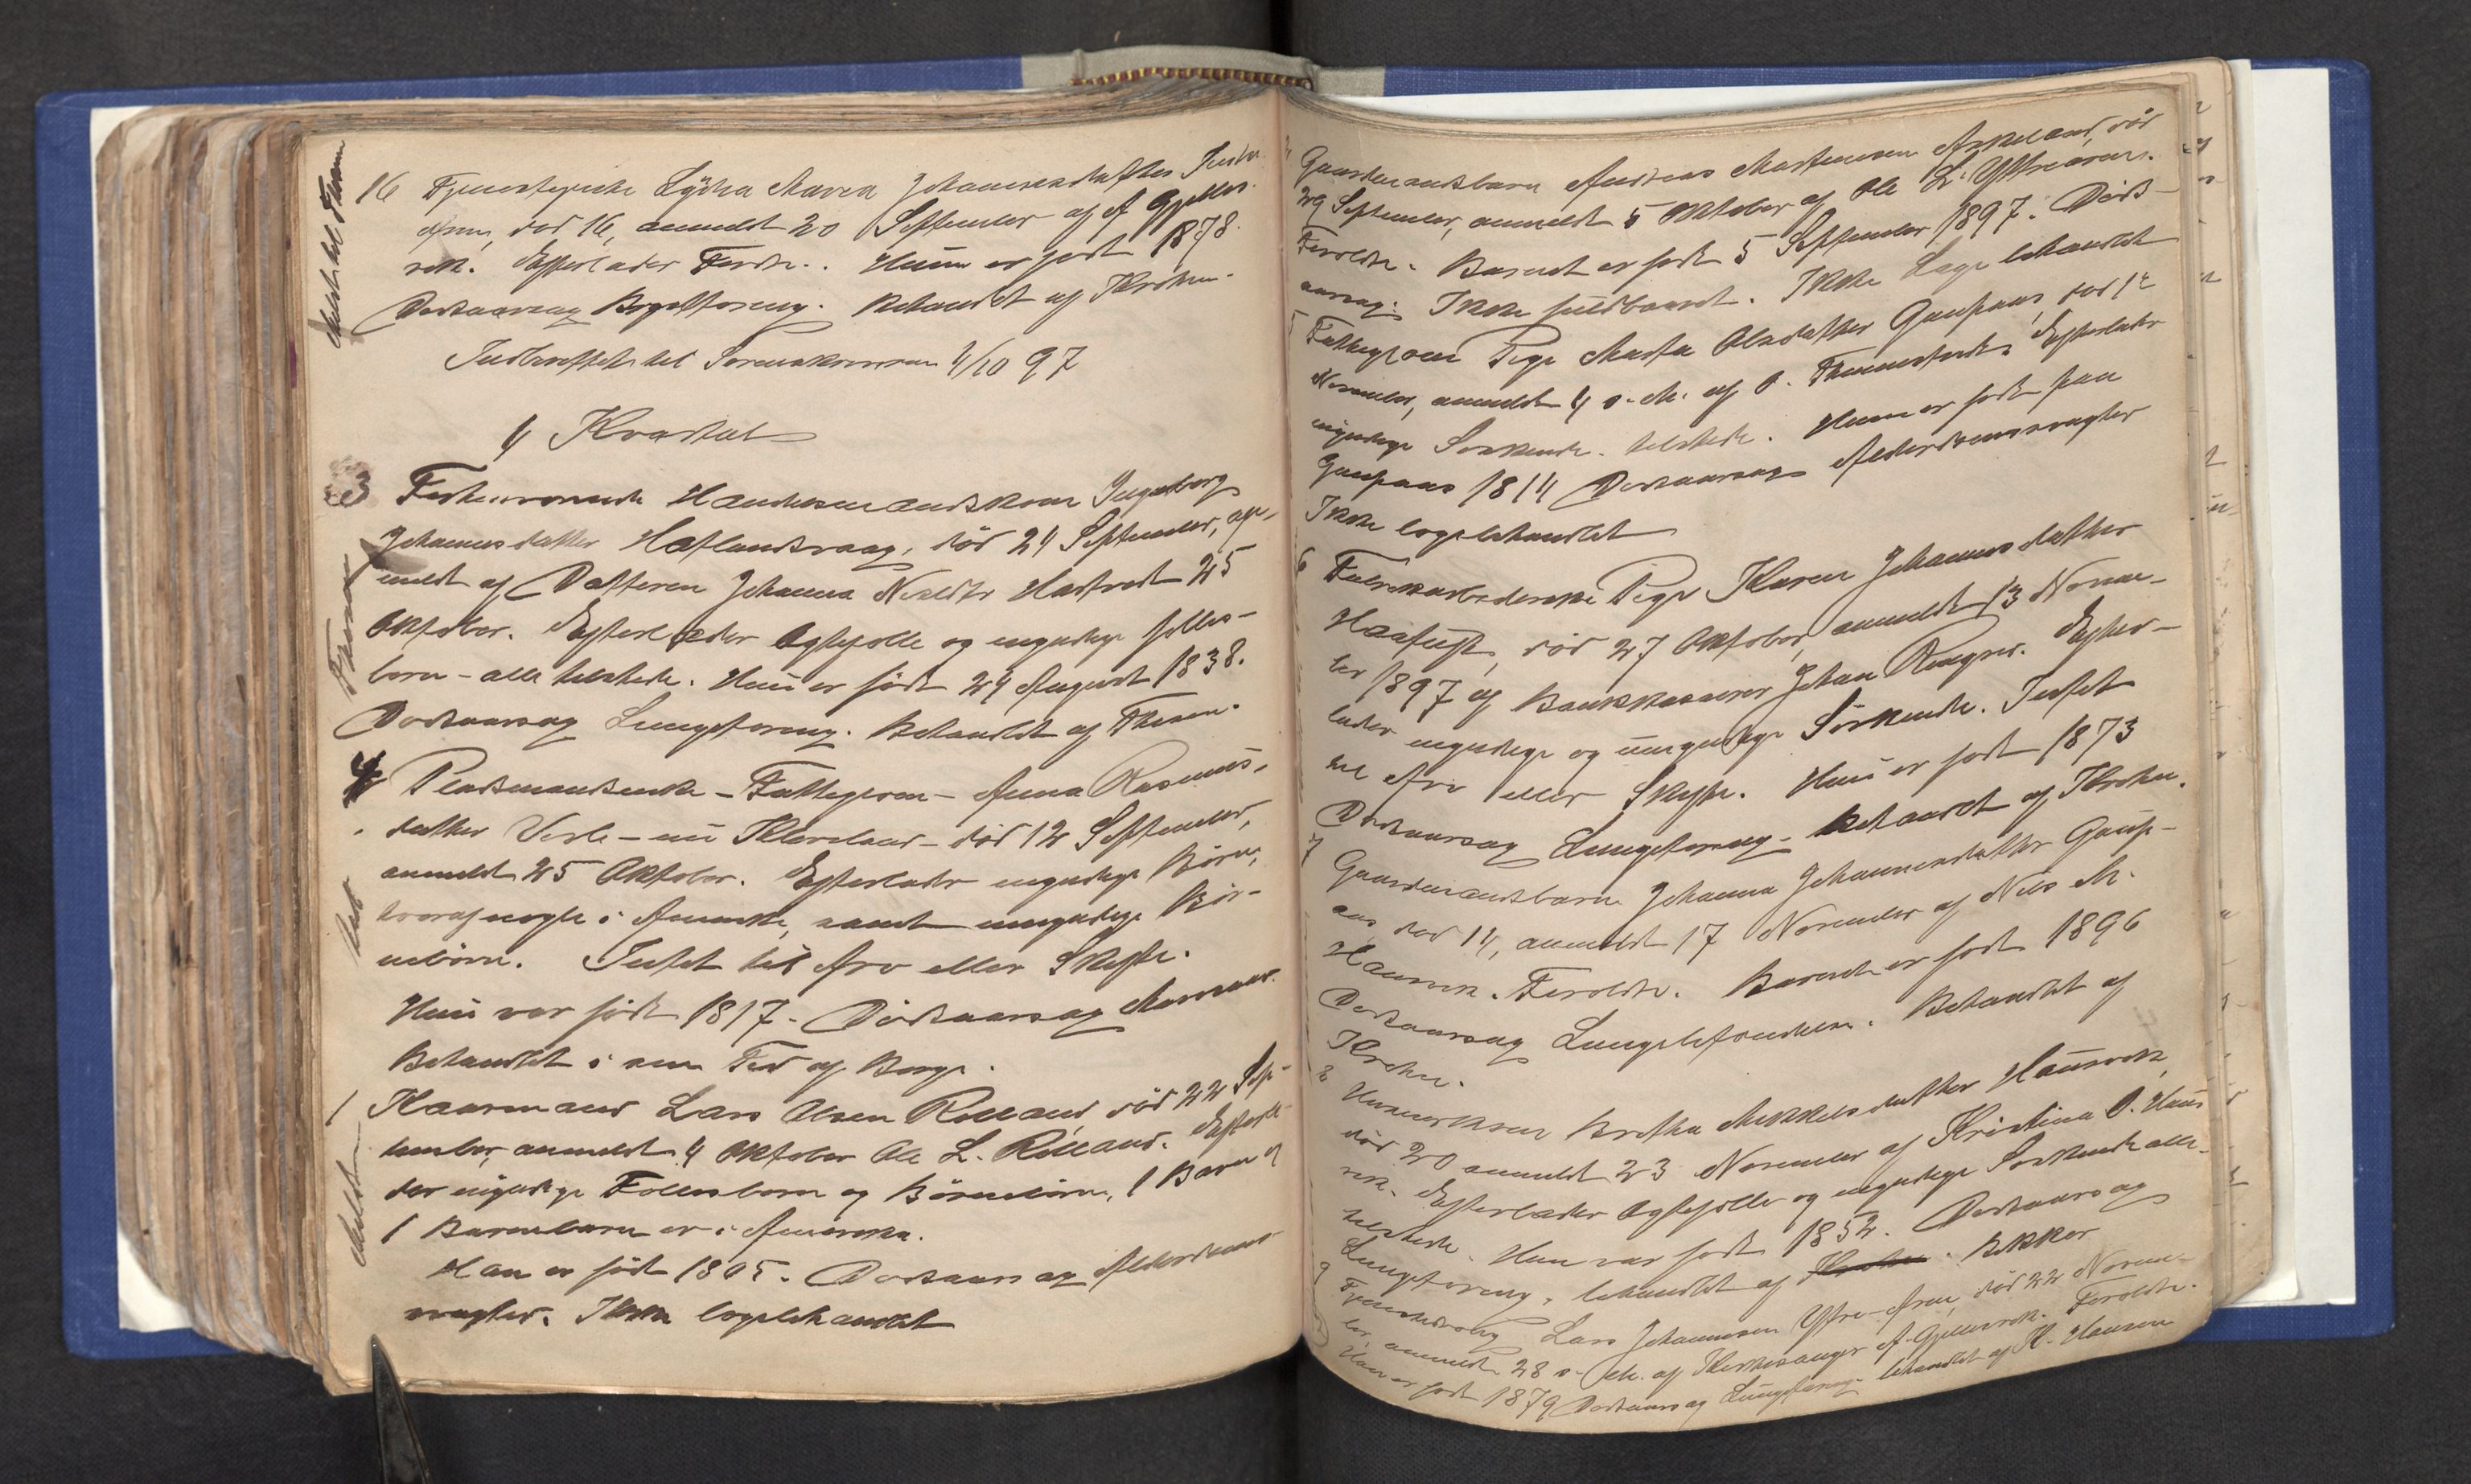 16 Tjenestepige Lydia Maria Johannesdatter Indre
Arne, død 16, anmeldt 20 September af A Gjelles-
vik. Efterlader Foreldre. Hun er født 1878.
Dødsaarsag Brystforeng. Behandlet af Krohn.
Indberettet til Sorenskriveren 4/10 97
4 Kvartal
3 Forhenværende Handelsmandskone Ingeborg
Johannesdatter Haflandsvaag, død 24 September, an-
meldt af Datteren Johanna 25
Oktober. Efterlader Ægtefælle og myndige Fælles-
børn - alle tilstede. Hun er født 24 August 1838.
Dødsaarsag Lungetæring. Behandlet af Thesen.
4 Pladsmandsenke - Fattiglem - Anna Rasmus-
datter Vesle - nu Kleveland - død 12 September,
anmeldt 25 Oktober. Efterlader myndige Børn,
hvoraf nogle i Amerika, samt umyndige Bør-
nebørn. Intet til Arv eller Skifte.
Hun var født 1817. Dødsaarsag
Behandlet i sin Tid af Borge.
1 Kaarmand Lars Olsen Rolland, død 22 Sep-
tember, anmeldt 4 Oktober Ole L. Rolland. Efterla-
der myndige Fællesbørn og Børnebørn, 1 Barn og
1 Barnebarn er i Amerika.
Han er født 1805. Dødsaarsag Alderdoms-
svaghed. Ikke lægebehandlet
Gaardmandsbarn Andreas Martinsen Askeland, død
29 September, anmeldt 5 Oktober af Ole L. Ytrearne.
Foreldre. Barnet er født 5 September 1897. Døds-
aarsag: Ikke fuldbaaret. Ikke Læge behandlet
5 Fattiglem Pige Marta Olsdatter Gaupaas, død 1ste
November, anmeldt 4 s. M. af O. Efterlader
myndige Søskende tilstede. Hun er født paa
Gaupaas 1814 Dødsaarsag Alderdomssvaghed
Ikke lægebehandlet
6 Fabrikarbeiderske Pige Karen Johannesdatter
død 27 Oktober, anmeldt 13 Novem-
ber 1897 af Bankkasserer Johan Efter-
lader myndige og umyndige Søskende. Intet
til Arv eller Skifte. Hun er født 1873
Dødsaarsag Lungetæring - behandlet af Krohn.
7 Gaardmandsbarn Johanna Johannesdatter Gaup-
aas, død 14, anmeldt 17 November af Nils M.
Haunvik. Foreldre. Barnet er født 1896
Dødsaarsag Lungebetændelse. Behandlet af
Krohn.
8 Husmandskone Brytha Mikkelsdatter Haunvik,
død 20 anmeldt 23 November af Kristina O. Haun
vik. Efterlader Ægtefælle og myndige Søskende alle
tilstede. Hun var født 1852. Dødsaarsag
Lungetæring, behandlet af Krohn. Bekker
9 Tjenestedreng Lars Johannesen Ytre-Arne, død 22 Novem-
ber, anmeldt 28 s. M. af Kirkesanger A. Gjellesvik. Foreldre.
Han er født 1879 Dødsaarsag Lungetæring behandlet af K. Hansen